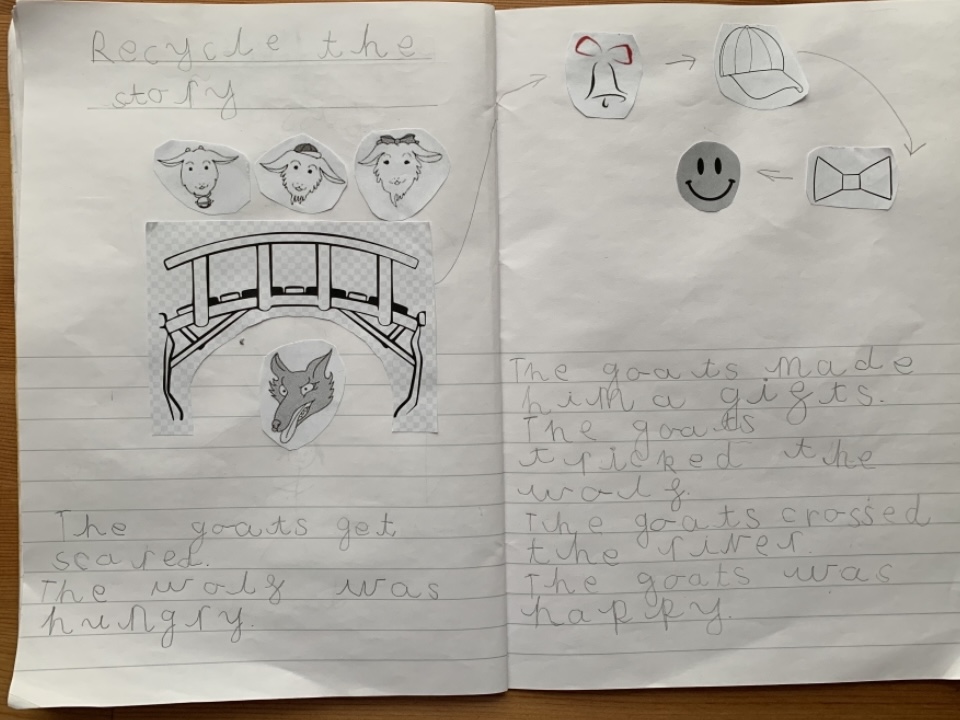 Recycle the
story
The goats get
scared.
The wolf was
hungry.
The goats made
him a gifts.
The goats
tricked the
wolf.
The goats crossed
the river.
The goats was
happy.